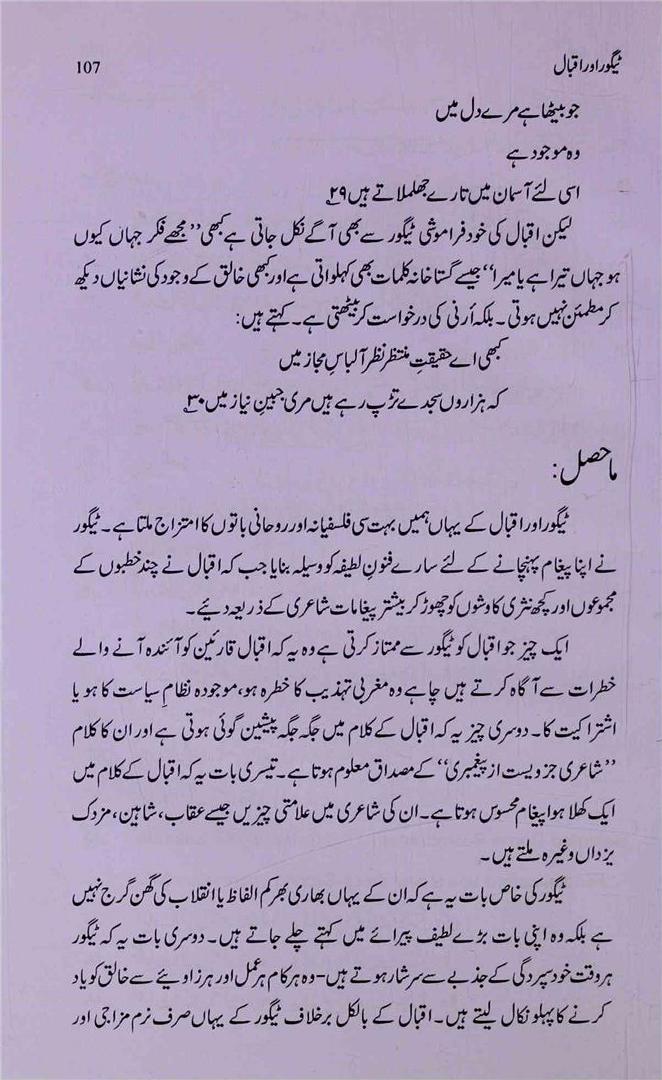 ٹیگور اور اقبال 107
جو بیٹھا ہے مرے دل میں
وہ موجود ہے
اسی لئے آسمان میں تارے جھلملاتے ہیں ۲۹؎
لیکن اقبال کی خود فراموشی ٹیگور سے بھی آگے نکل جاتی ہے کبھی ”مجھے فکر جہاں کیوں
ہو جہاں تیرا ہے یا میرا“ جیسے گستاخانہ کلمات بھی کہلواتی ہے اور کبھی خالق کے وجود کی نشانیاں دیکھ
کر مطمئن نہیں ہوتی۔ بلکہ اَرنی کی درخواست کر بیٹھتی ہے۔ کہتے ہیں:
کبھی اے حقیقتِ منتظر نظر آ لباسِ مجاز میں
کہ ہزاروں سجدے تڑپ رہے ہیں مری جبینِ نیاز میں ۳۰؎
ماحصل:
ٹیگور اور اقبال کے یہاں ہمیں بہت سی فلسفیانہ اور روحانی باتوں کا امتزاج ملتا ہے۔ ٹیگور
نے اپنا پیغام پہنچانے کے لئے سارے فنونِ لطیفہ کو وسیلہ بنایا جب کہ اقبال نے چند خطبوں کے
مجموعوں اور کچھ نثری کاوشوں کو چھوڑ کر بیشتر پیغامات شاعری کے ذریعہ دیئے۔
ایک چیز جو اقبال کو ٹیگور سے ممتاز کرتی ہے وہ یہ کہ اقبال قارئین کو آئندہ آنے والے
خطرات سے آگاہ کرتے ہیں چاہے وہ مغربی تہذیب کا خطرہ ہو، موجودہ نظامِ سیاست کا ہو یا
اشتراکیت کا۔ دوسری چیز یہ کہ اقبال کے کلام میں جگہ جگہ پیشین گوئی ہوتی ہے اور ان کا کلام
”شاعری جزویست از پیغمبری“ کے مصداق معلوم ہوتا ہے۔ تیسری بات یہ کہ اقبال کے کلام میں
ایک کھلا ہوا پیغام محسوس ہوتا ہے۔ ان کی شاعری میں علامتی چیزیں جیسے عقاب، شاہین، مزدک
یزداں وغیرہ ملتے ہیں۔
ٹیگور کی خاص بات یہ ہے کہ ان کے یہاں بھاری بھرکم الفاظ یا انقلاب کی گھن گرج نہیں
ہے بلکہ وہ اپنی بات بڑے لطیف پیرائے میں کہتے چلے جاتے ہیں۔ دوسری بات یہ کہ ٹیگور
ہر وقت خود سپردگی کے جذبے سے سرشار ہوتے ہیں – وہ ہر کام ہر عمل اور ہر زاویئے سے خالق کو یاد
کرنے کا پہلو نکال لیتے ہیں۔ اقبال کے بالکل برخلاف ٹیگور کے یہاں صرف نرم مزاجی اور